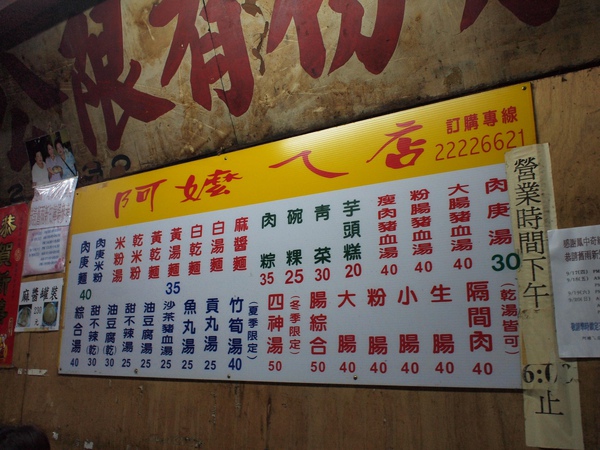 限有份
阿嬤ㄟ店
訂購專線
22226621
肉庚湯 30
(乾湯皆可)
大腸豬血湯 40
粉腸豬血湯 40
瘦肉豬血湯 40
芋頭糕 20
青菜 30
碗粿 25
肉粽 35
麻醬麵
白湯麵
白乾麵
黃湯麵
黃乾麵
35
乾米粉
米粉湯
肉庚米粉
肉庚麵
40
隔間肉 40
生腸 40
小腸 40
粉腸 40
大腸 40
腸綜合 50
(冬季限定)
四神湯 50
(夏季限定)
竹筍湯 40
貢丸湯 25
魚丸湯 25
沙茶豬血湯 35
油豆腐湯 25
甜不辣湯 25
油豆腐(乾) 30
甜不辣(乾) 30
綜合湯 40
營業時間下午
止
恭賀
麻醬罐裝